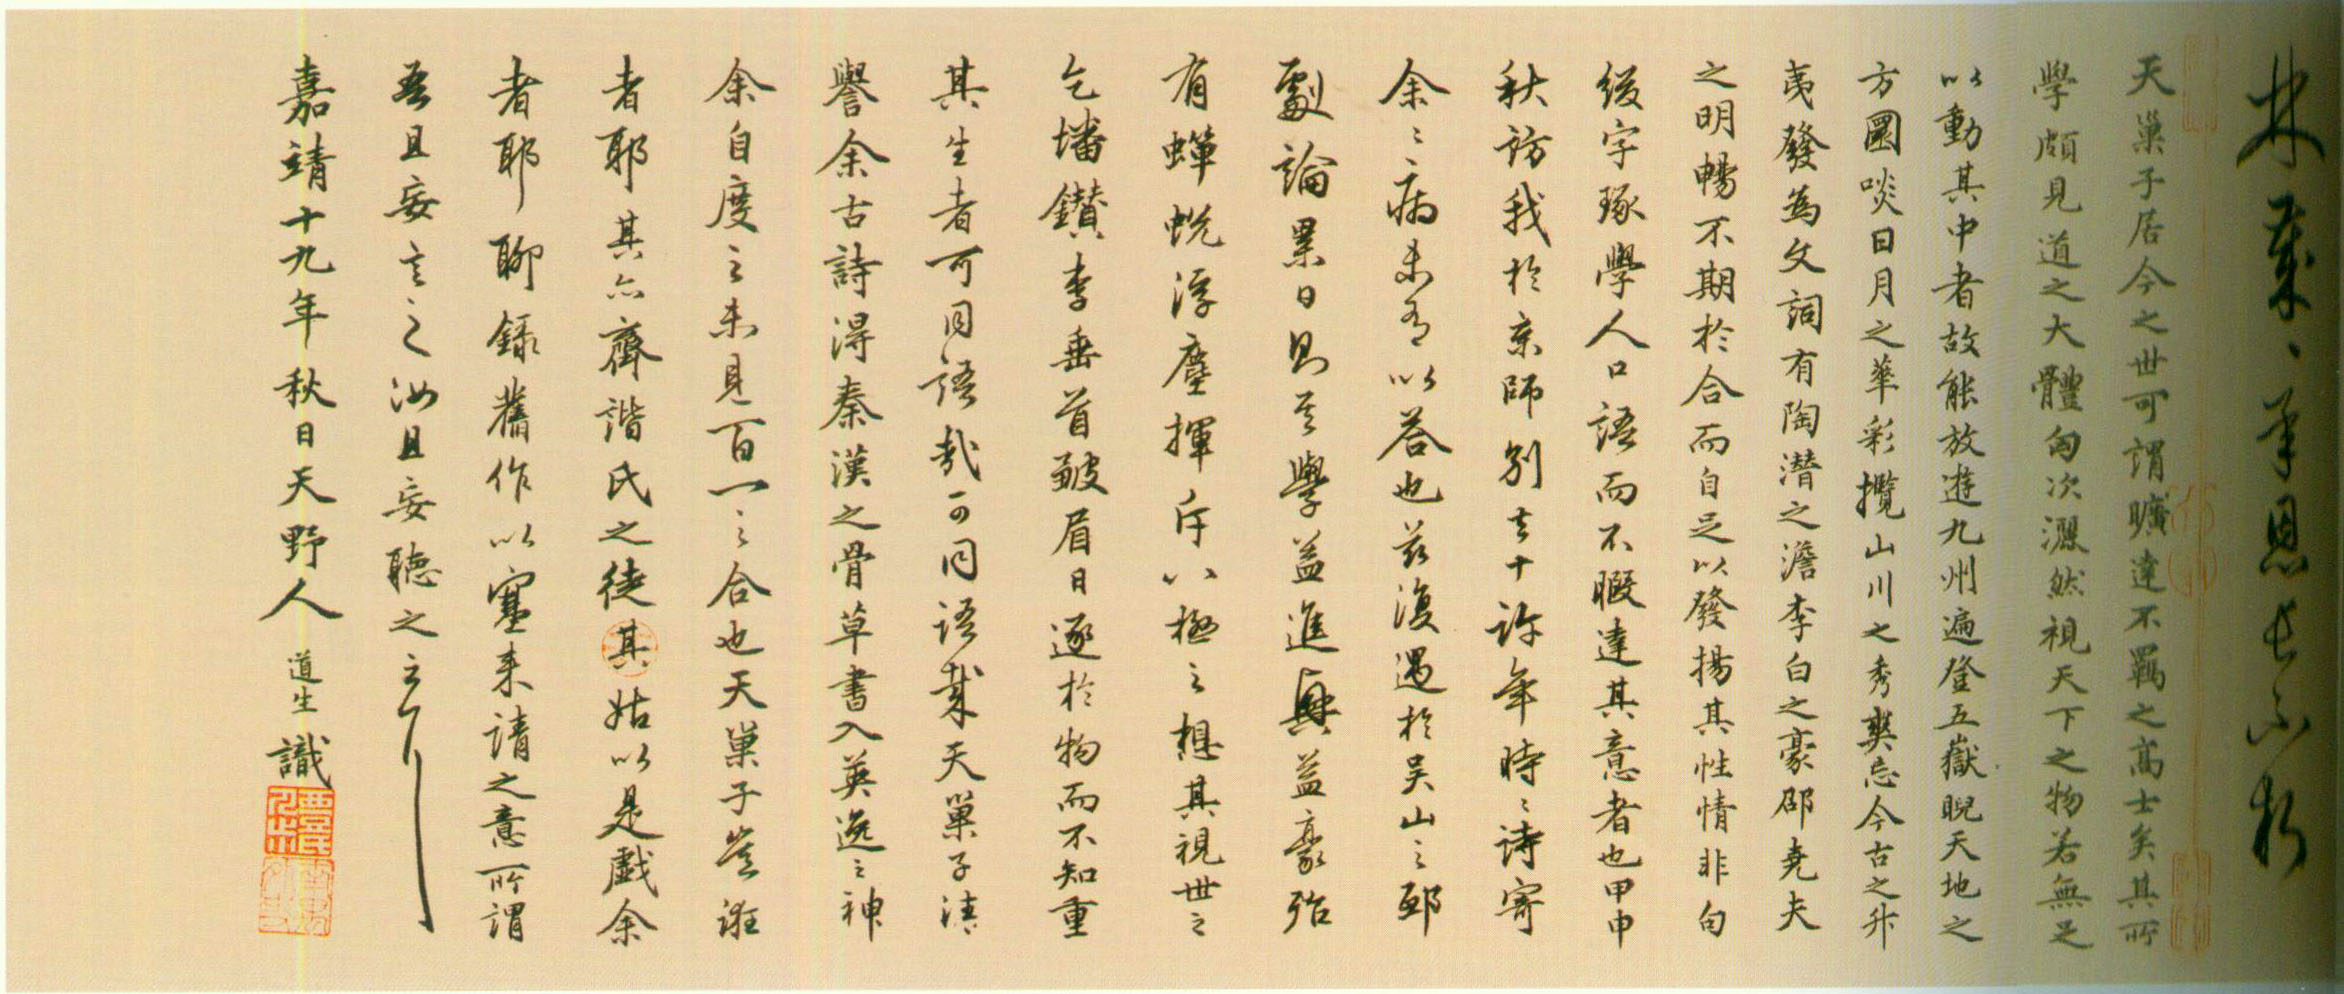 天巢子居今之世可謂曠達不羈之高士矣其所
學頗見道之大體匈次濕然視天下之物若無足
以動其中者故能放遊九州遍登五嶽睨天地之
方圓啖日月之華彩攬山川之秀爽忘今古之升
夷發為文詞有陶潛之澹李白之豪邵堯夫
之明暢不期於合而自足以發揚其性情非句
綴字琢學人口語而不暇達其意者也甲申
秋訪我於京師別去十許年時〻詩寄
余〻病未有以答也茲復遇於吳山之邸
劇論累日則其學益進興益豪殆
有蟬蛻浮塵揮斥八極之想其視世之
乞墦鑽李垂首皺眉日逐於物而不知重
其生者可同語哉可同語哉天巢子謓
譽余古詩得秦漢之骨草書入英逸之神
余自度之未見百一之合也天巢子豈誑
者耶其亦齊諧氏之徒其姑以是戲余
者耶聊錄舊作以塞來請之意所謂
吾且妄言之汝且妄聽之云
嘉靖十九年秋日天野人道生識